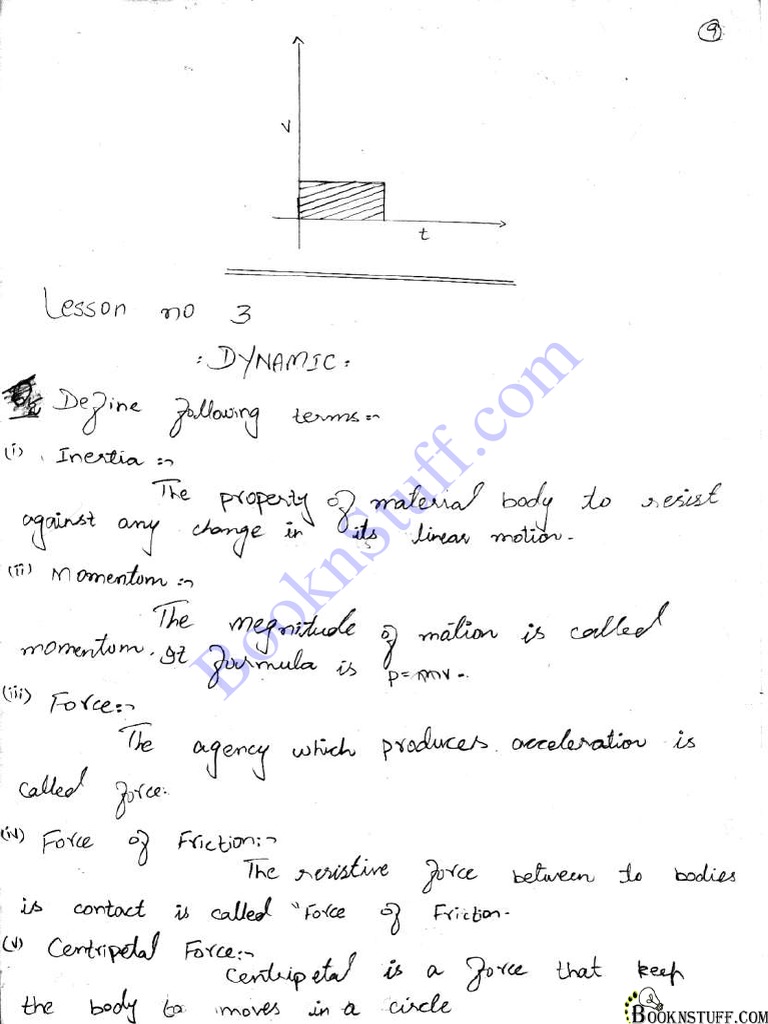 9
V
t
Lesson no 3
: DYNAMIC :
Define following terms:-
(i) Inertia :-
The property of material body to resist
against any change in its linear motion.
(ii) Momentum :-
The megnitude of mation is called
momentum. It formula is P=mv.
(iii) Force:-
The agency which produces acceleration is
called force.
(iv) Force of Friction:-
The resistive force between to bodies
is contact is called "Force of Friction.
(v) Centripetal Force:-
Centripetal is a force that keep
the body to moves in a circle
BooknStuff.com
BOOKNSTUFF.COM